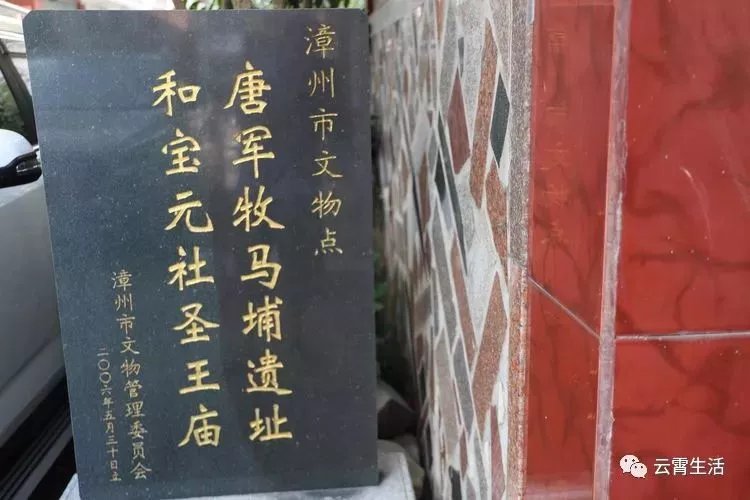 漳州市文物点
唐军牧马埔遗址
和宝元社圣王庙
漳州市文物管理委员会
二〇〇六年五月三十日立
云霄生活